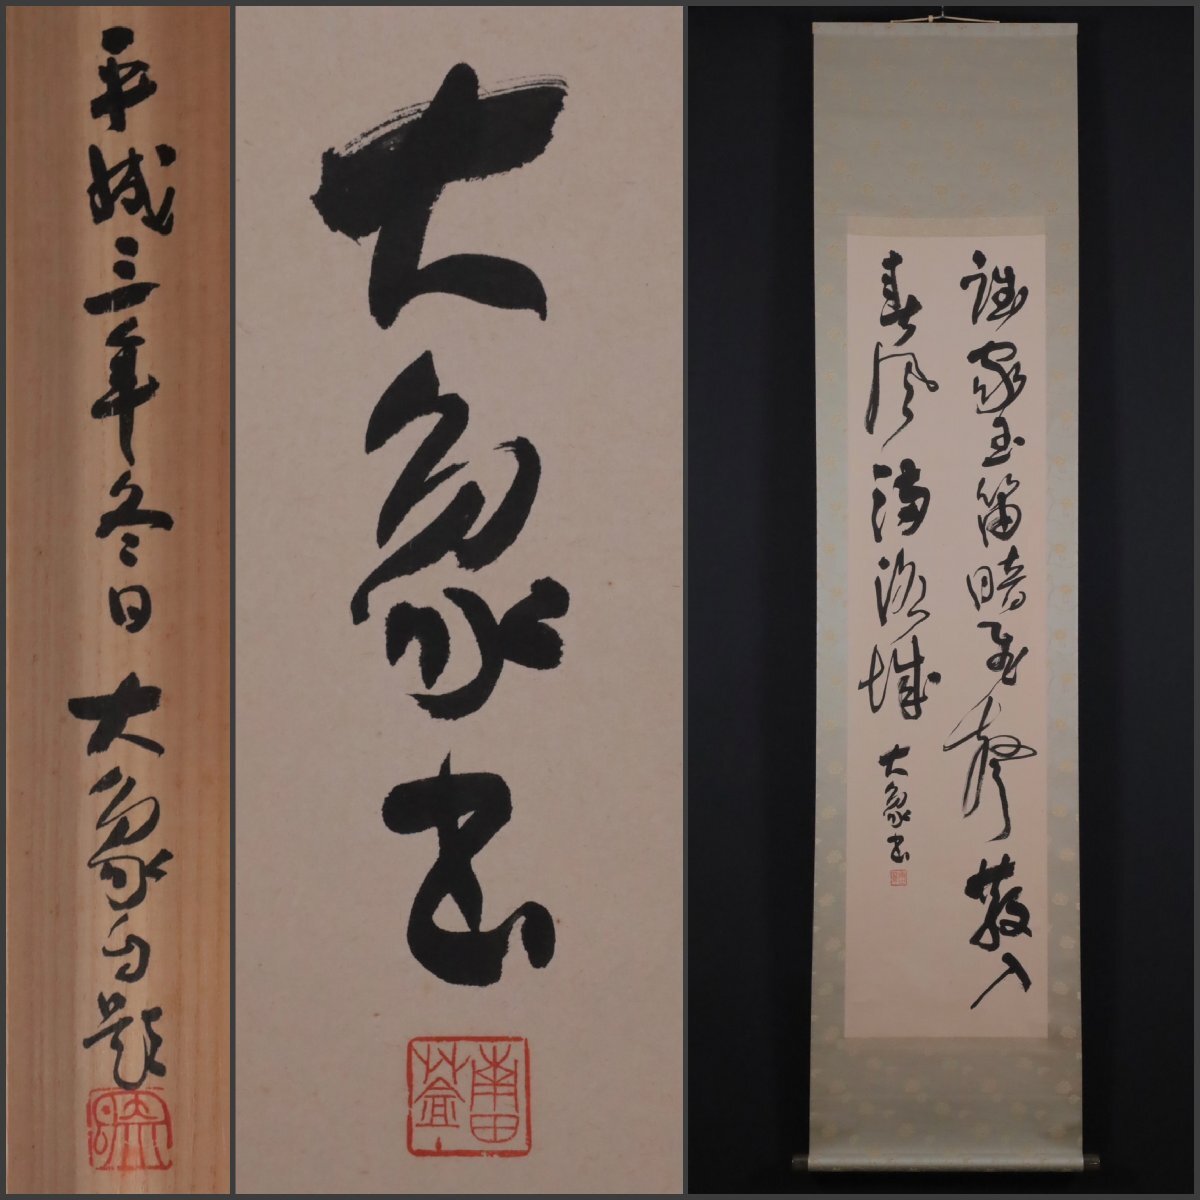 平成三年冬日 大象自題
大象書
誰家玉笛暗飛聲散入
春風満洛城 大象書